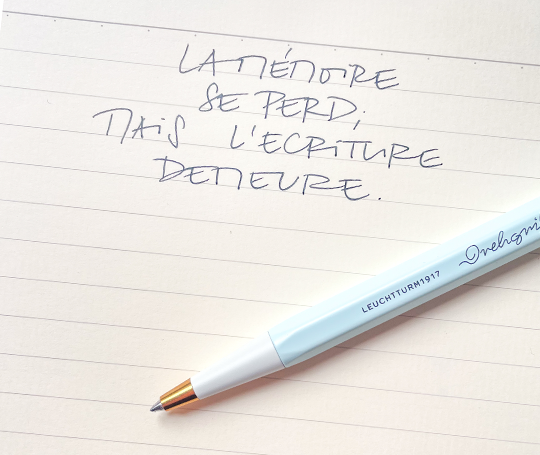 LA MÉMOIRE
SE PERD;
MAIS L'ECRITURE
DEMEURE.
LEUCHTTURM1917